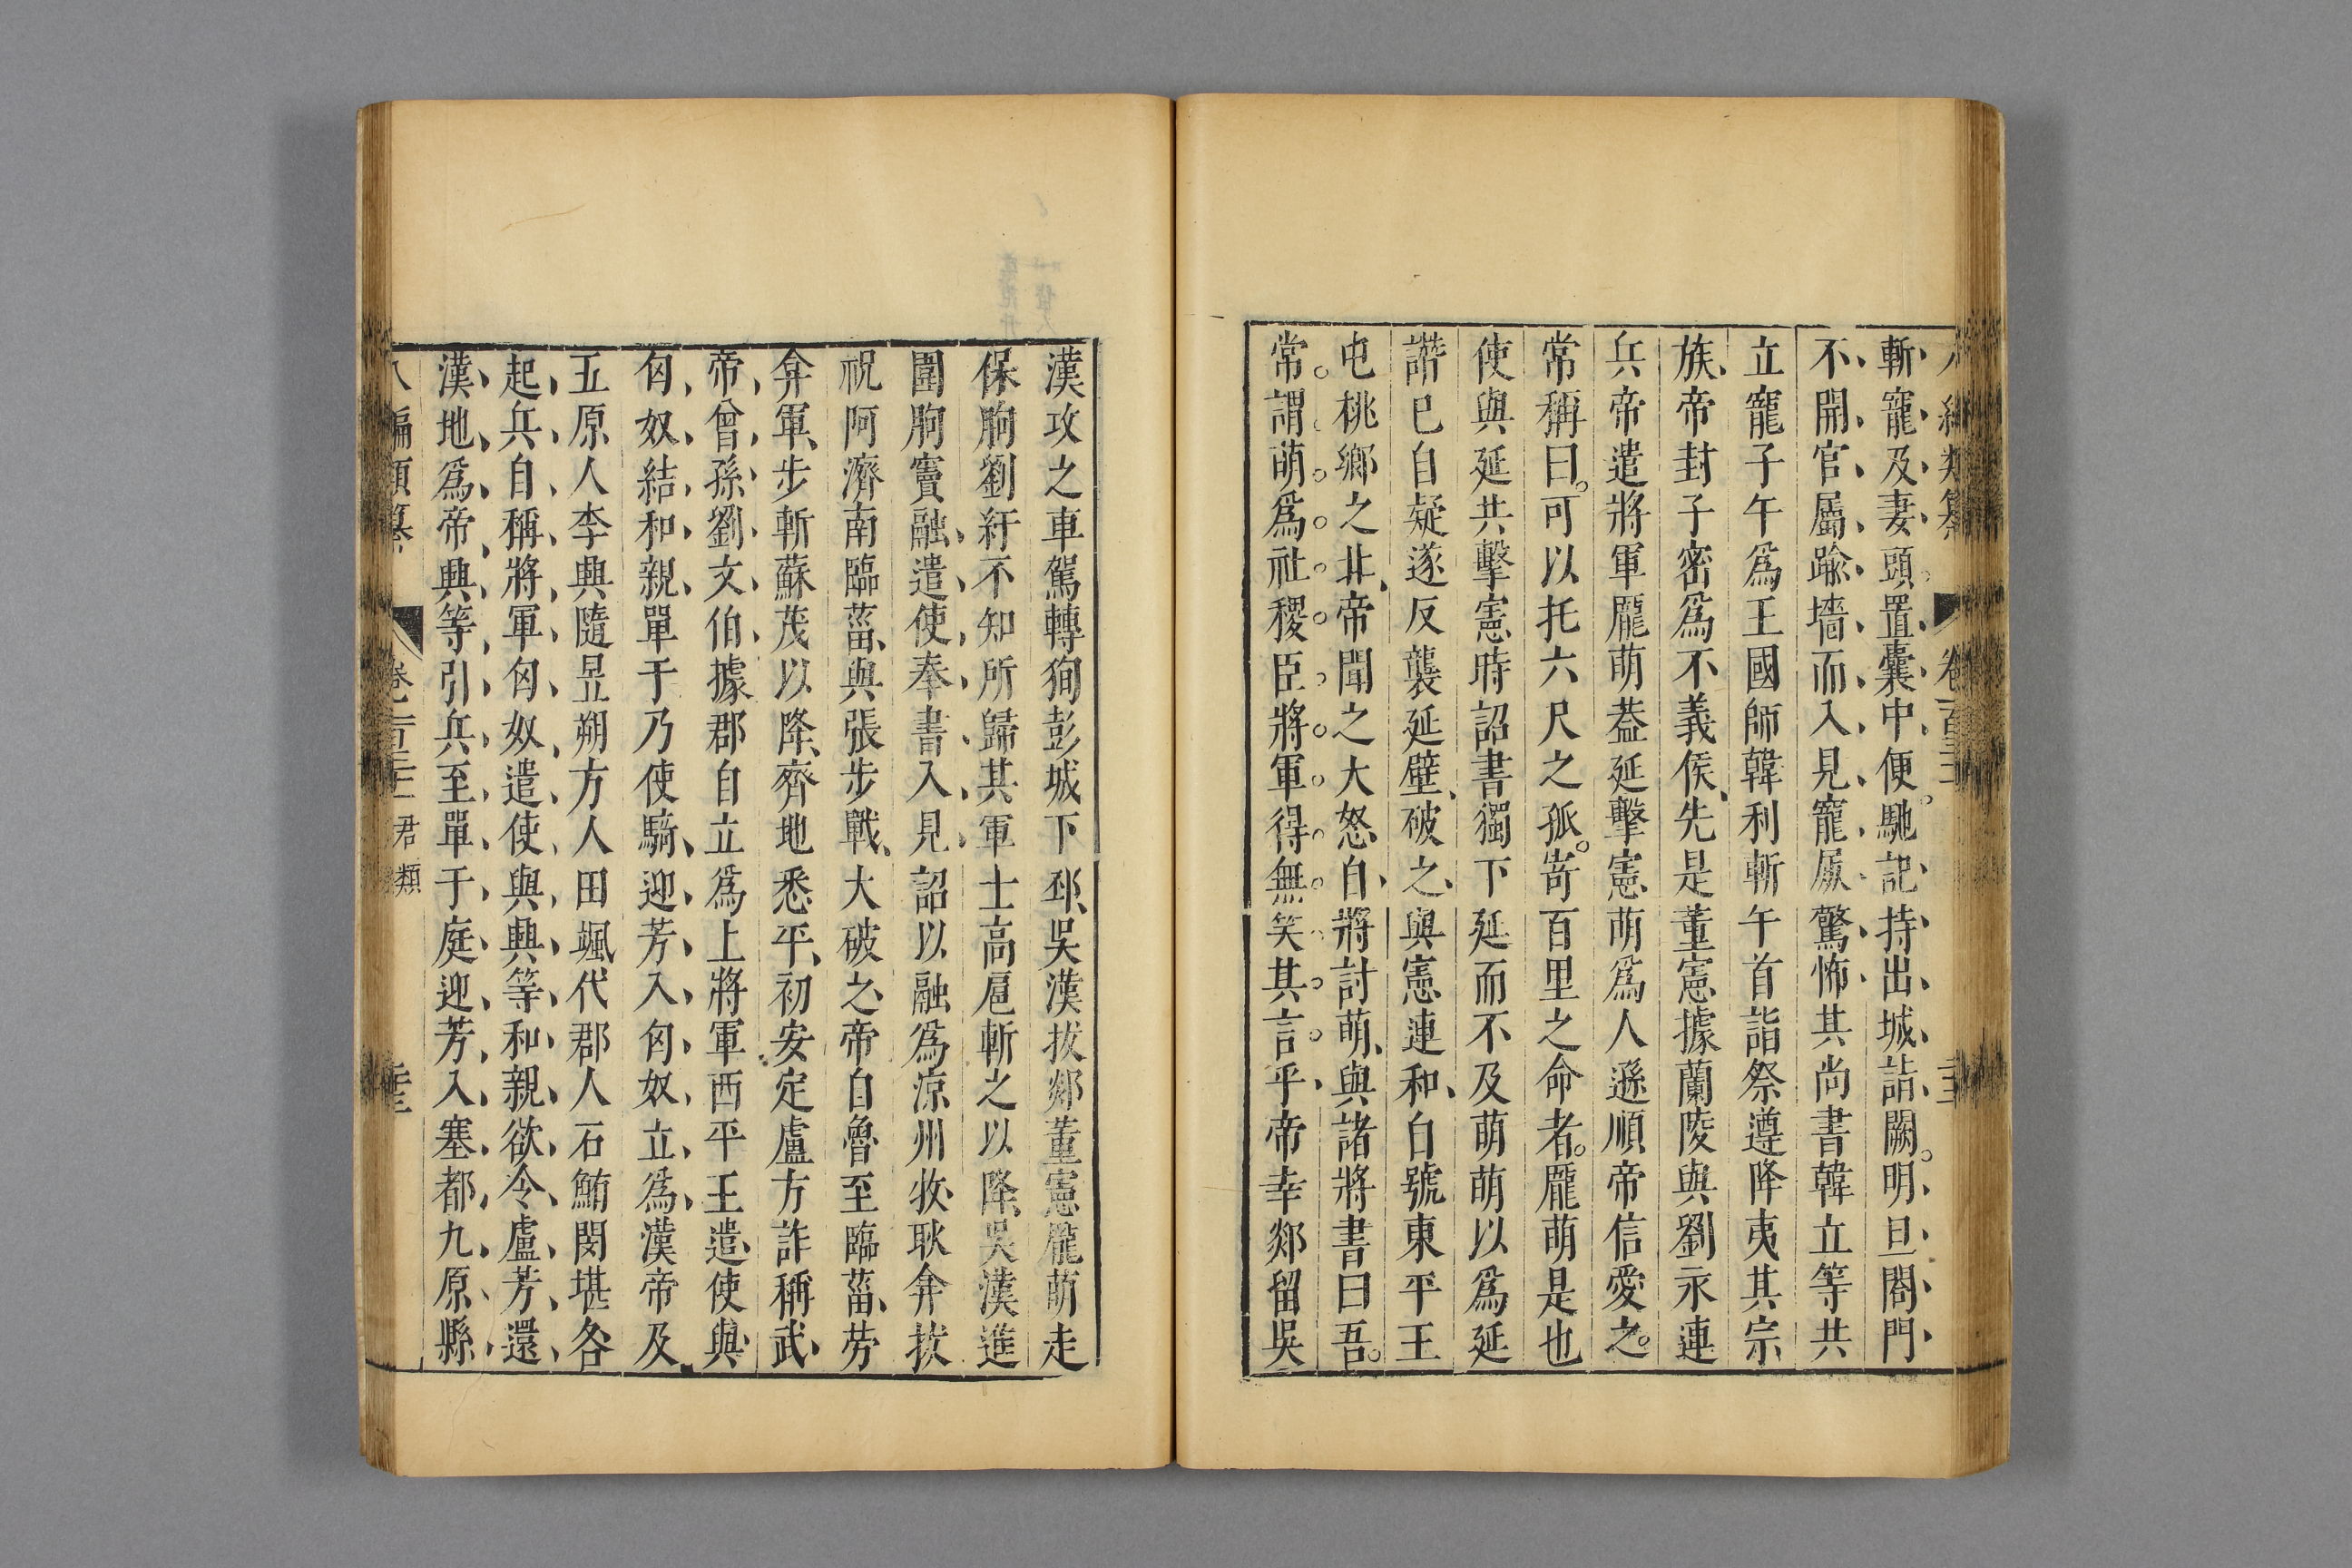 斬寵及妻頭置囊中便馳記持出城詣闕明旦閤門
不開官屬踰墻而入見寵屍驚怖其尚書韓立等共
立寵子午為王國師韓利斬午首詣祭遵降夷其宗
族帝封子密為不義侯先是董憲據蘭陵與劉永連
兵帝遣將軍龐萌葢延擊憲萌為人遜順帝信愛之
常稱曰可以托六尺之孤寄百里之命者龐萌是也
使與延共擊憲時詔書獨下延而不及萌萌以為延
譖已自疑遂反襲延壁破之與憲連和自號東平王
屯桃鄉之北帝聞之大怒自將討萌與諸將書曰吾
常謂萌為社稷臣將軍得無笑其言乎帝幸郯留吳
漢攻之車駕轉狥彭城下邳吳漢拔郯董憲龐萌走
保朐劉紆不知所歸其軍士高扈斬之以降吳漢進
圍朐竇融遣使奉書入見詔以融為涼州牧耿弇拔
祝阿濟南臨菑與張步戰大破之帝自魯至臨菑勞
弇軍步斬蘇茂以降齊地悉平初安定盧方詐稱武
帝曾孫劉文伯據郡自立為上將軍西平王遣使與
匈奴結和親單于乃使騎迎芳入匈奴立為漢帝及
五原人李興隨昱朔方人田颯代郡人石鮪閔堪各
起兵自稱將軍匈奴遣使與興等和親欲令盧芳還
漢地為帝興等引兵至單于庭迎芳入塞都九原縣
八編類纂 卷一百三十二 君類